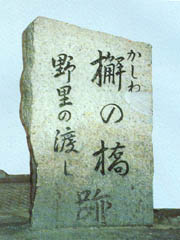 かしわ
槲の橋跡
野里の渡し